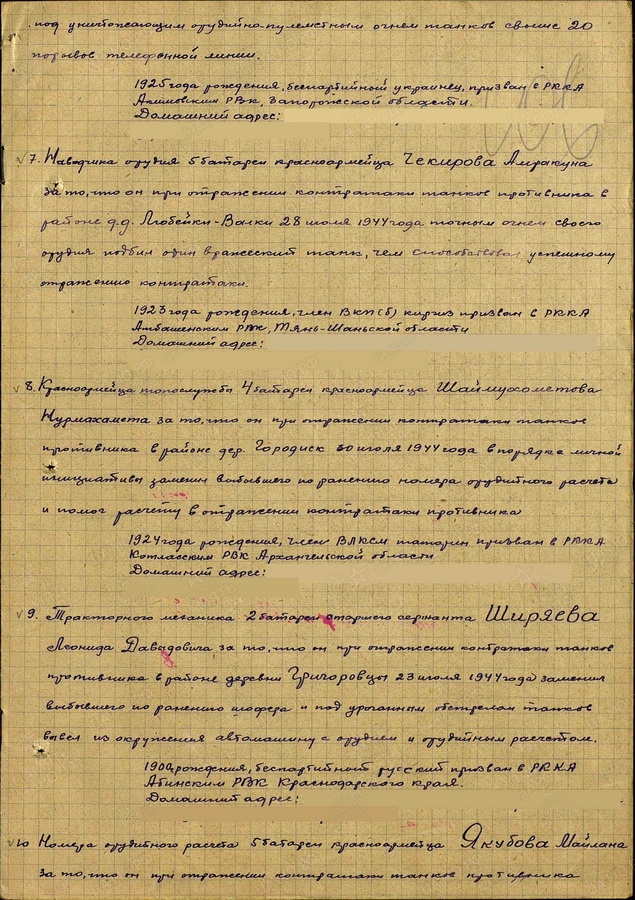 под уничтожающим орудийно-пулеметным огнем танков свыше 20
порывов телефонной линии.
1925 года рождения, беспартийный украинец, призван в РККА
Акимовским РВК, Запорожской области.
Домашний адрес:
7. Наводчика орудия 5 батареи красноармейца Чекирова Амракуна
за то, что он при отражении контратаки танков противника в
районе д.д. Любейки-Валки 28 июля 1944 года точным огнем своего
орудия подбил один вражеский танк, чем способствовал успешному
отражению контратаки.
1923 года рождения, член ВКП(б) киргиз призван в РККА
Атбашенским РВК, Тянь-Шаньской области
Домашний адрес:
8. Красноармейца топослужбы 4 батареи красноармейца Шаймухометова
Нурмахамета за то, что он при отражении контратаки танков
противника в районе дер. Городиск 30 июля 1944 года в порядке личной
инициативы заменил выбывшего по ранению номера орудийного расчета
и помог расчету в отражении контратаки противника
1924 года рождения, член ВЛКСМ татарин призван в РККА
Котласским РВК Архангельской области
Домашний адрес:
9. Тракторного механика 2 батареи старшего сержанта Ширяева
Леонида Давыдовича за то, что он при отражении контратаки танков
противника в районе деревни Григоровцы 23 июля 1944 года заменил
выбывшего по ранению шофера и под ураганным обстрелом танков
вывел из окружения автомашину с орудием и орудийным расчетом.
рождения, беспартийный русский призван в РККА
Абинским РВК Краснодарского края.
Домашний адрес:
10 Номера орудийного расчета 5 батареи красноармейца Якубова Майлана
за то, что он при отражении контратаки танков противника